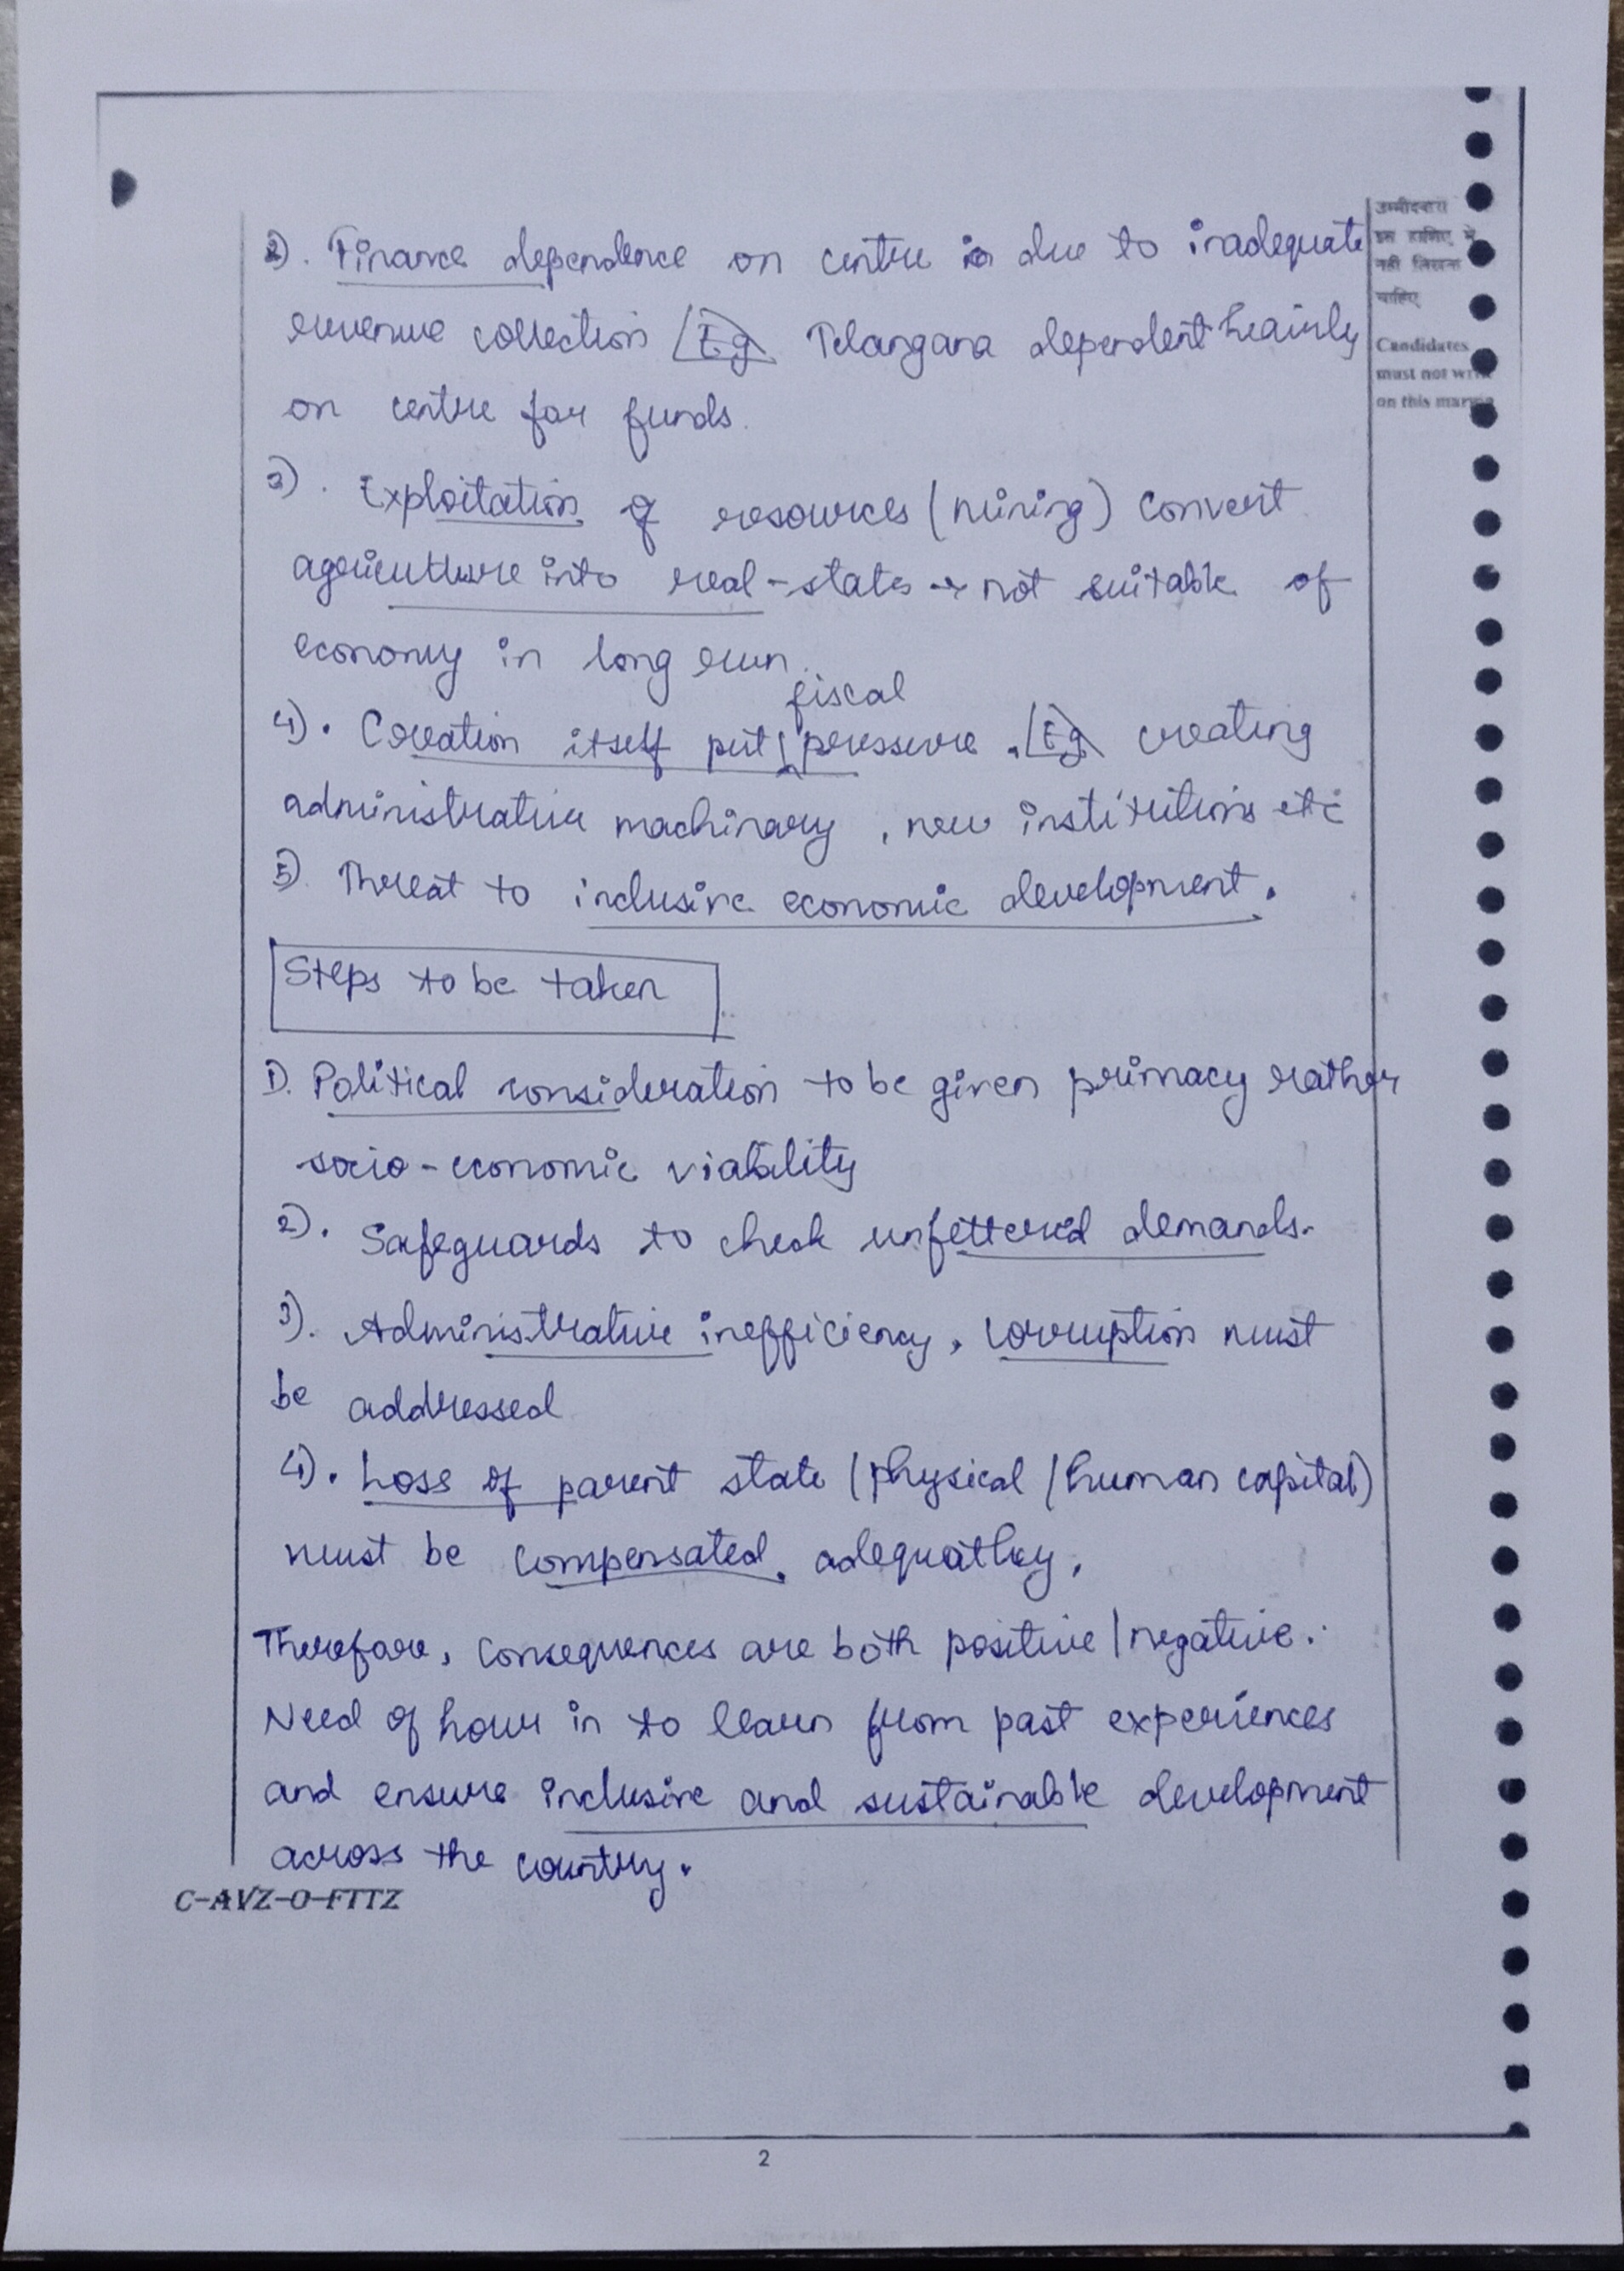 2). Finance dependence on centre is due to inadequate
revenue collection Eg Telangana dependent heavily
on centre for funds.
3). Exploitation of resources (mining) convert
agriculture into real-state → not suitable of
economy in long run.
fiscal
4). Creation itself put pressure. Eg creating
administrative machinary, new institutions etc
5). Threat to inclusive economic development.
Steps to be taken
1). Political consideration to be given primacy rather
socio-economic viability
2). Safeguards to check unfettered demands.
3). Administrative inefficiency, corruption must
be addressed
4). Loss of parent state (physical / human capital)
must be compensated adequatley.
Therefore, consequences are both positive / negative.
Need of hour in to learn from past experiences
and ensure inclusive and sustainable development
across the country.
C-AVZ-O-FTTZ
2
उम्मीदवारों
इस हाशिए में
नहीं लिखना
चाहिए
Candidates
must not
on this